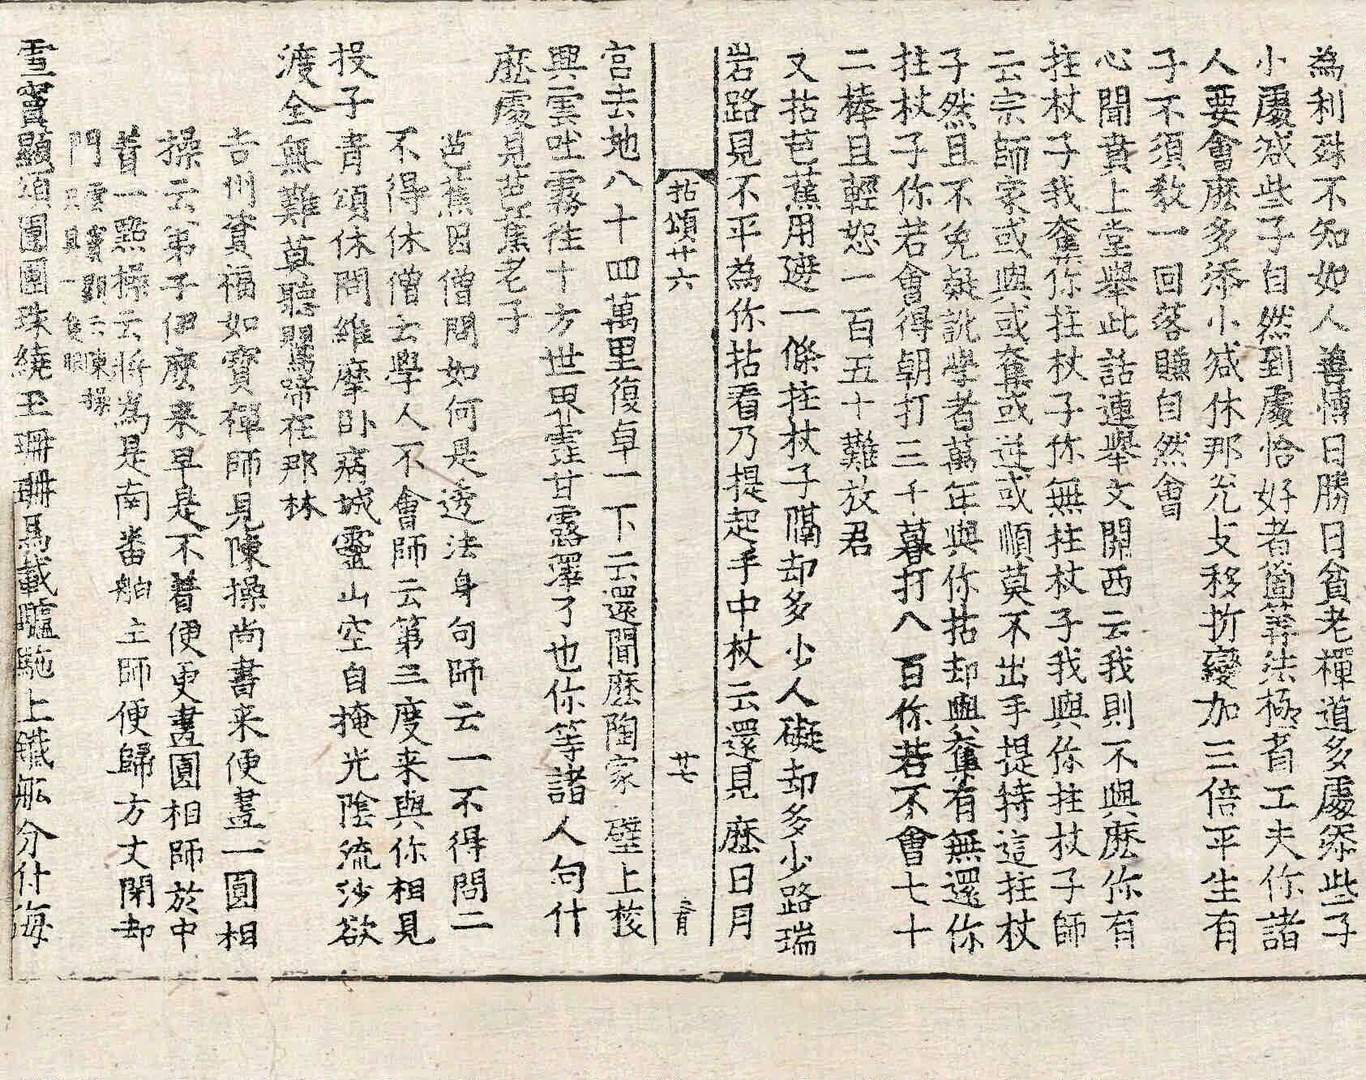 為利殊不知如人善愽日勝日貧老禪道多處添些子
小處减些子自然到處恰好者箇筭法極省工夫你諸
人要會麽多添小减休那兊攴移折變加三倍平生有
子不須教一回落賺自然會
心聞賁上堂舉此話連舉文關西云我則不與麽你有
拄杖子我奪你拄杖子你無拄杖子我與你拄杖子師
云宗師家或與或奪或逆或順莫不出手提持這拄杖
子然且不免凝訛學者萬年與你拈却與奪有無還你
拄杖子你若會得朝打三千暮打八百你若不會七十
二棒且輕恕一百五十難放君
又拈芭蕉用遮一條拄杖子隔却多少人礙却多少路瑞
岩路見不平為你拈看乃提起手中杖云還見麽日月
拈頌廿六 廿七
宫去地八十四萬里復卓一下云還聞麽陶家壁上梭
興雲吐霧徃十方世界霔甘露澤了也你等諸人向什
麽處見芭蕉老子
芭蕉因僧問如何是透法身句師云一不得問二
不得休僧云學人不會師云第三度来與你相見
投子青頌休問維摩卧病城靈山空自掩光陰流沙欲
渡全無難莫聽鸎啼在那林
吉州資福如寳禪師見陳操尚書来便畫一圓相
操云弟子伊麽来早是不著便更畫圓相師於中
著一點操云將爲是南番舶主師便歸方丈閉却
門雲竇顯云陳操只具一隻眼
雪竇顯頌團團珠繞玉珊珊馬載驢駞上鐵舡分付海